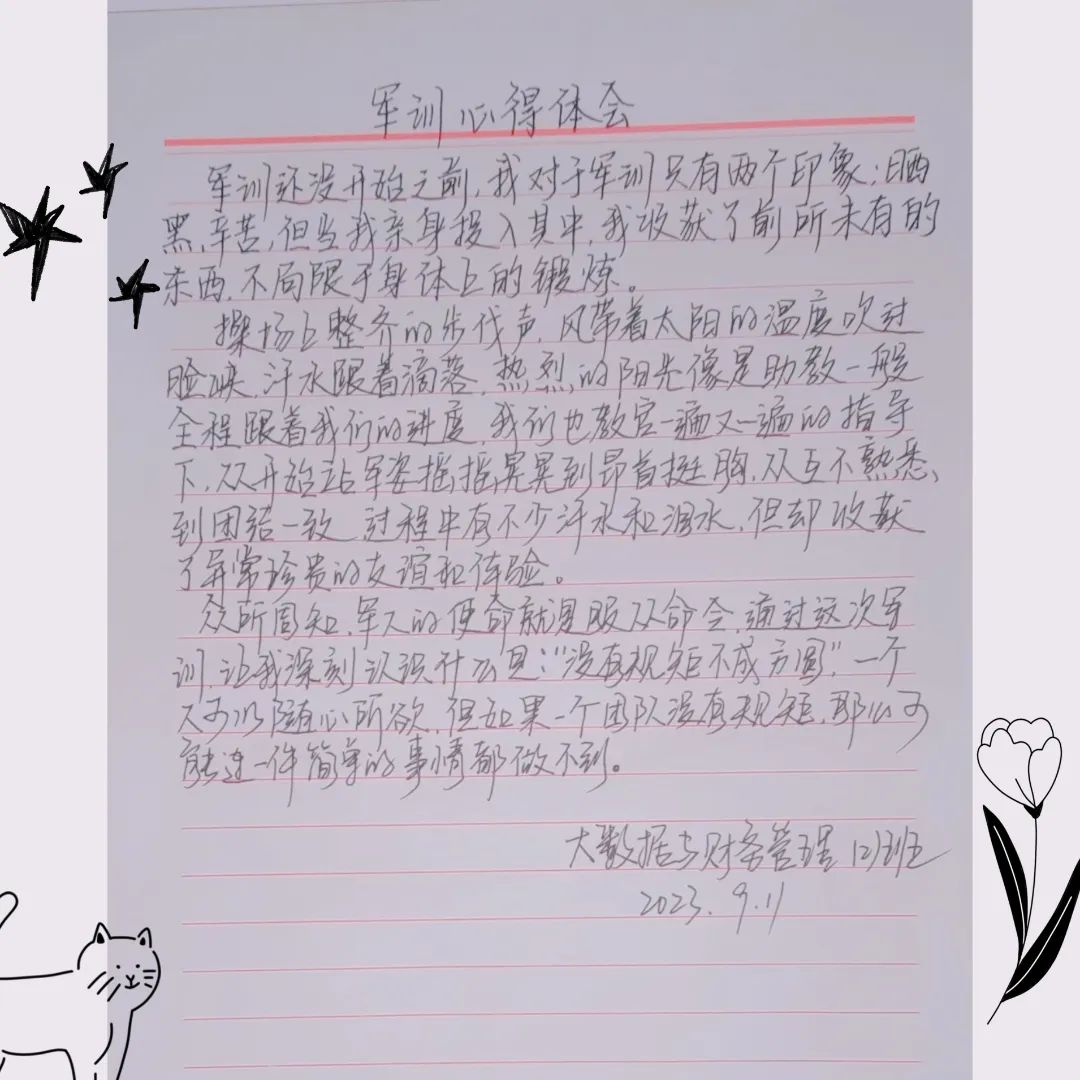 军训心得体会
军训还没开始之前,我对于军训只有两个印象:晒
黑,辛苦,但当我亲身投入其中,我收获了前所未有的
东西,不局限于身体上的锻炼。
操场上整齐的步伐声,风带着太阳的温度吹过
脸颊,汗水跟着滴落,热烈的阳光像是助教一般
全程跟着我们的进度,我们也教官一遍又一遍的指导
下,从开始站军姿摇摇晃晃到昂首挺胸,从互不熟悉、
到团结一致,过程中有不少汗水和泪水,但却收获
了异常珍贵的友谊和体验。
众所周知,军人的使命就是服从命令,通过这次军
训,让我深刻认识什么是:"没有规矩不成方圆",一个
人可以随心所欲,但如果一个团队没有规矩,那么可
能连一件简单的事情都做不到。
大数据与财务管理 班
2023.9.11